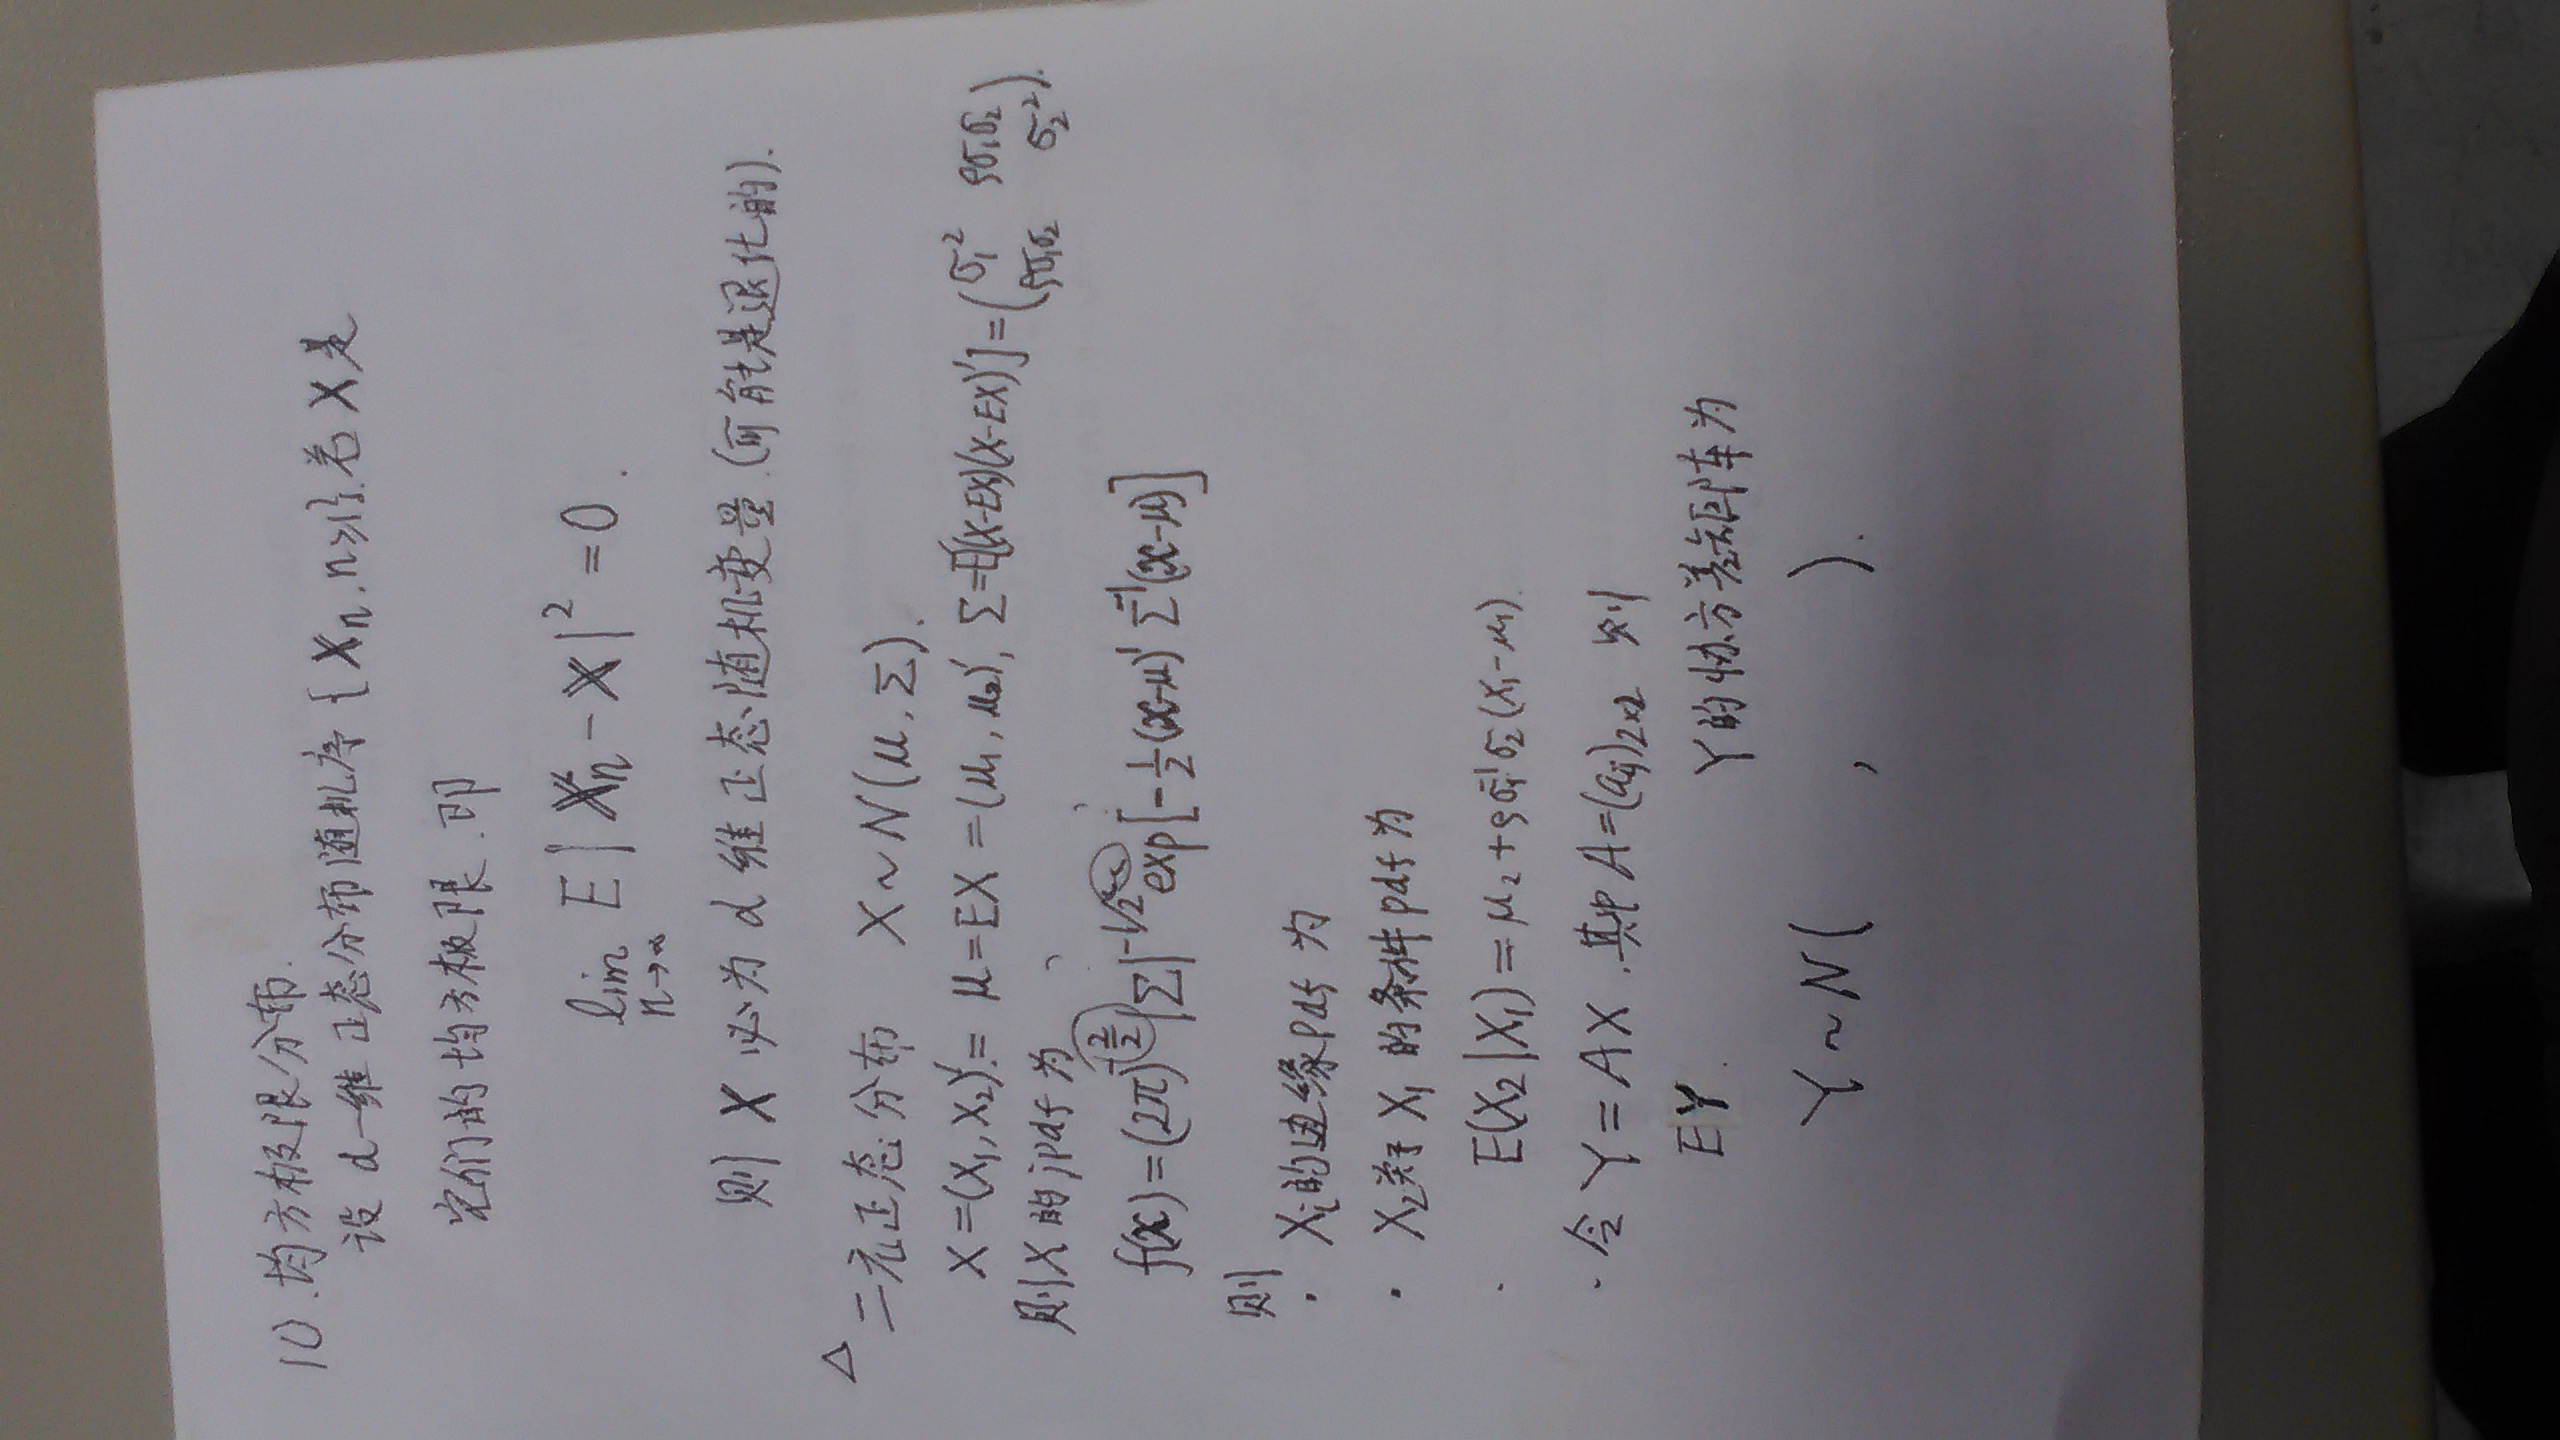 10. 均方极限分布.
设 d-维正态分布随机序 {Xn, n≥1}. 若 X 是
它们的均方极限. 即
lim n→∞ E|Xn-X|² = 0.
则 X 必为 d 维正态随机变量. (可能是退化的).
△ 二元正态分布 X~N(μ, Σ).
X=(X₁, X₂)′= μ=EX=(μ₁, μ₂)′, Σ=E[(X-EX)(X-EX)′]=(σ₁² ρσ₁σ₂
ρσ₁σ₂ σ₂²).
则 X 的 jpdf 为
f(x)=(2π)^(-2/2)|Σ|^(-1/2) exp[-1/2(x-μ)′Σ⁻¹(x-μ)]
则
· Xi 的边缘 pdf 为
· X₂ 关于 X₁ 的条件 pdf 为
· E(X₂|X₁)=μ₂+ρσ₁⁻¹σ₂(X₁-μ₁).
· 令 Y=AX. 其中 A=(aij)₂ₓ₂ 则
EY. Y的协方差矩阵为
Y~N( , ).